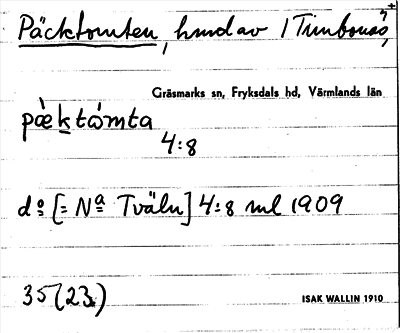 Päcktomten, hmd av 1 Timbonäs,
Gräsmarks sn, Fryksdals hd, Värmlands län
pæ̀ktòmta
4:8
do [= Na Tväln] 4:8 ml 1909
35(23)
ISAK WALLIN 1910